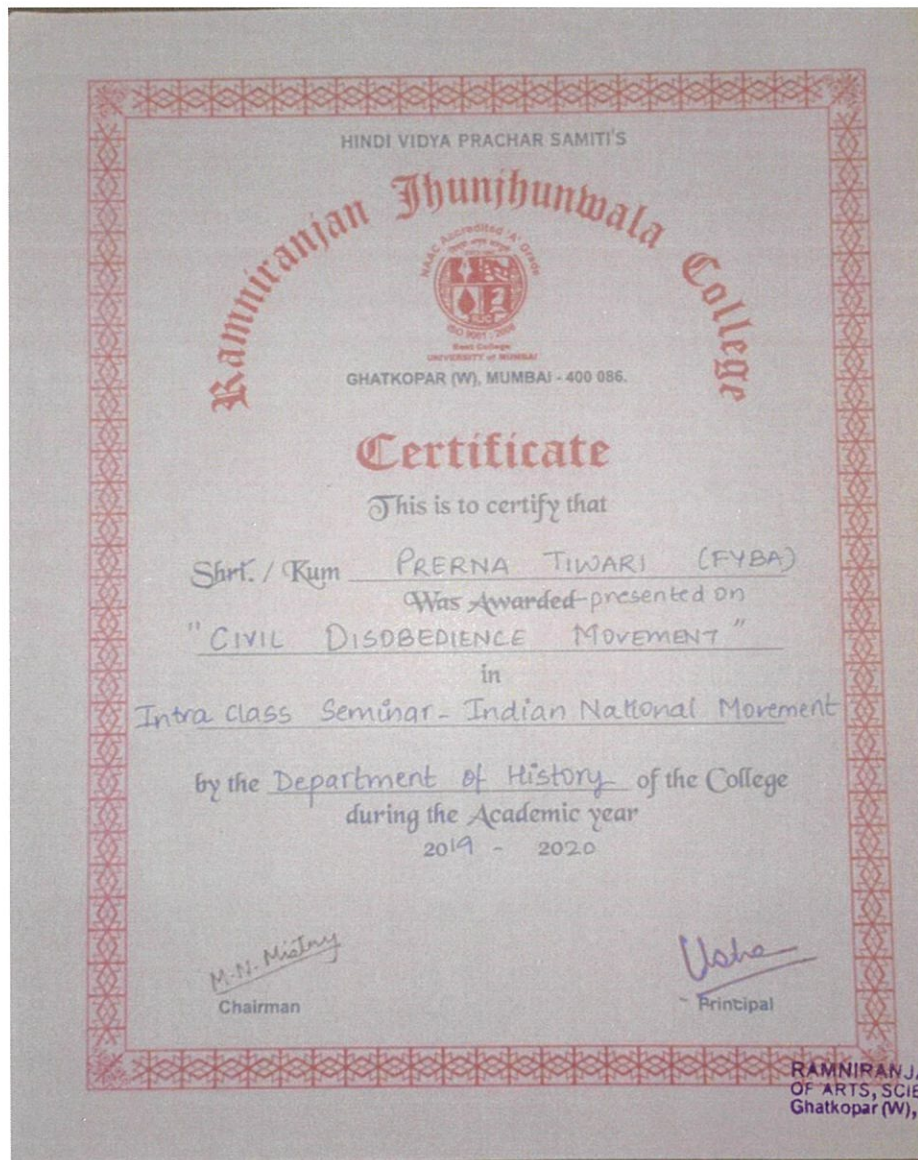 HINDI VIDYA PRACHAR SAMITI'S
Ramniranjan Jhunjhunwala College
NAAC Accredited 'A' Grade
ISO 9001 : 2008
Best College
UNIVERSITY of MUMBAI
GHATKOPAR (W), MUMBAI - 400 086.
Certificate
This is to certify that
Shri. / Kum PRERNA TIWARI (FYBA)
Was Awarded presented on
"CIVIL DISOBEDIENCE MOVEMENT"
in
Intra Class Seminar - Indian National Movement
by the Department of History of the College
during the Academic year
2019 - 2020
M.N. Mistry
Usha
Chairman
Principal
RAMNIRANJA
OF ARTS, SCIE
Ghatkopar (W),